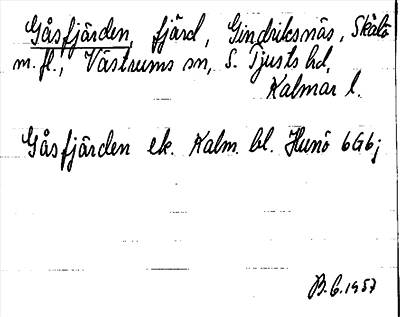 Gåsfjärden, fjärd, Gindriksnäs, Skälö
m. fl., Västrums sn, S. Tjusts hd,
Kalmar l.
Gåsfjärden ek. Kalm. bl. Hunö 6G6j
B.C. 1957